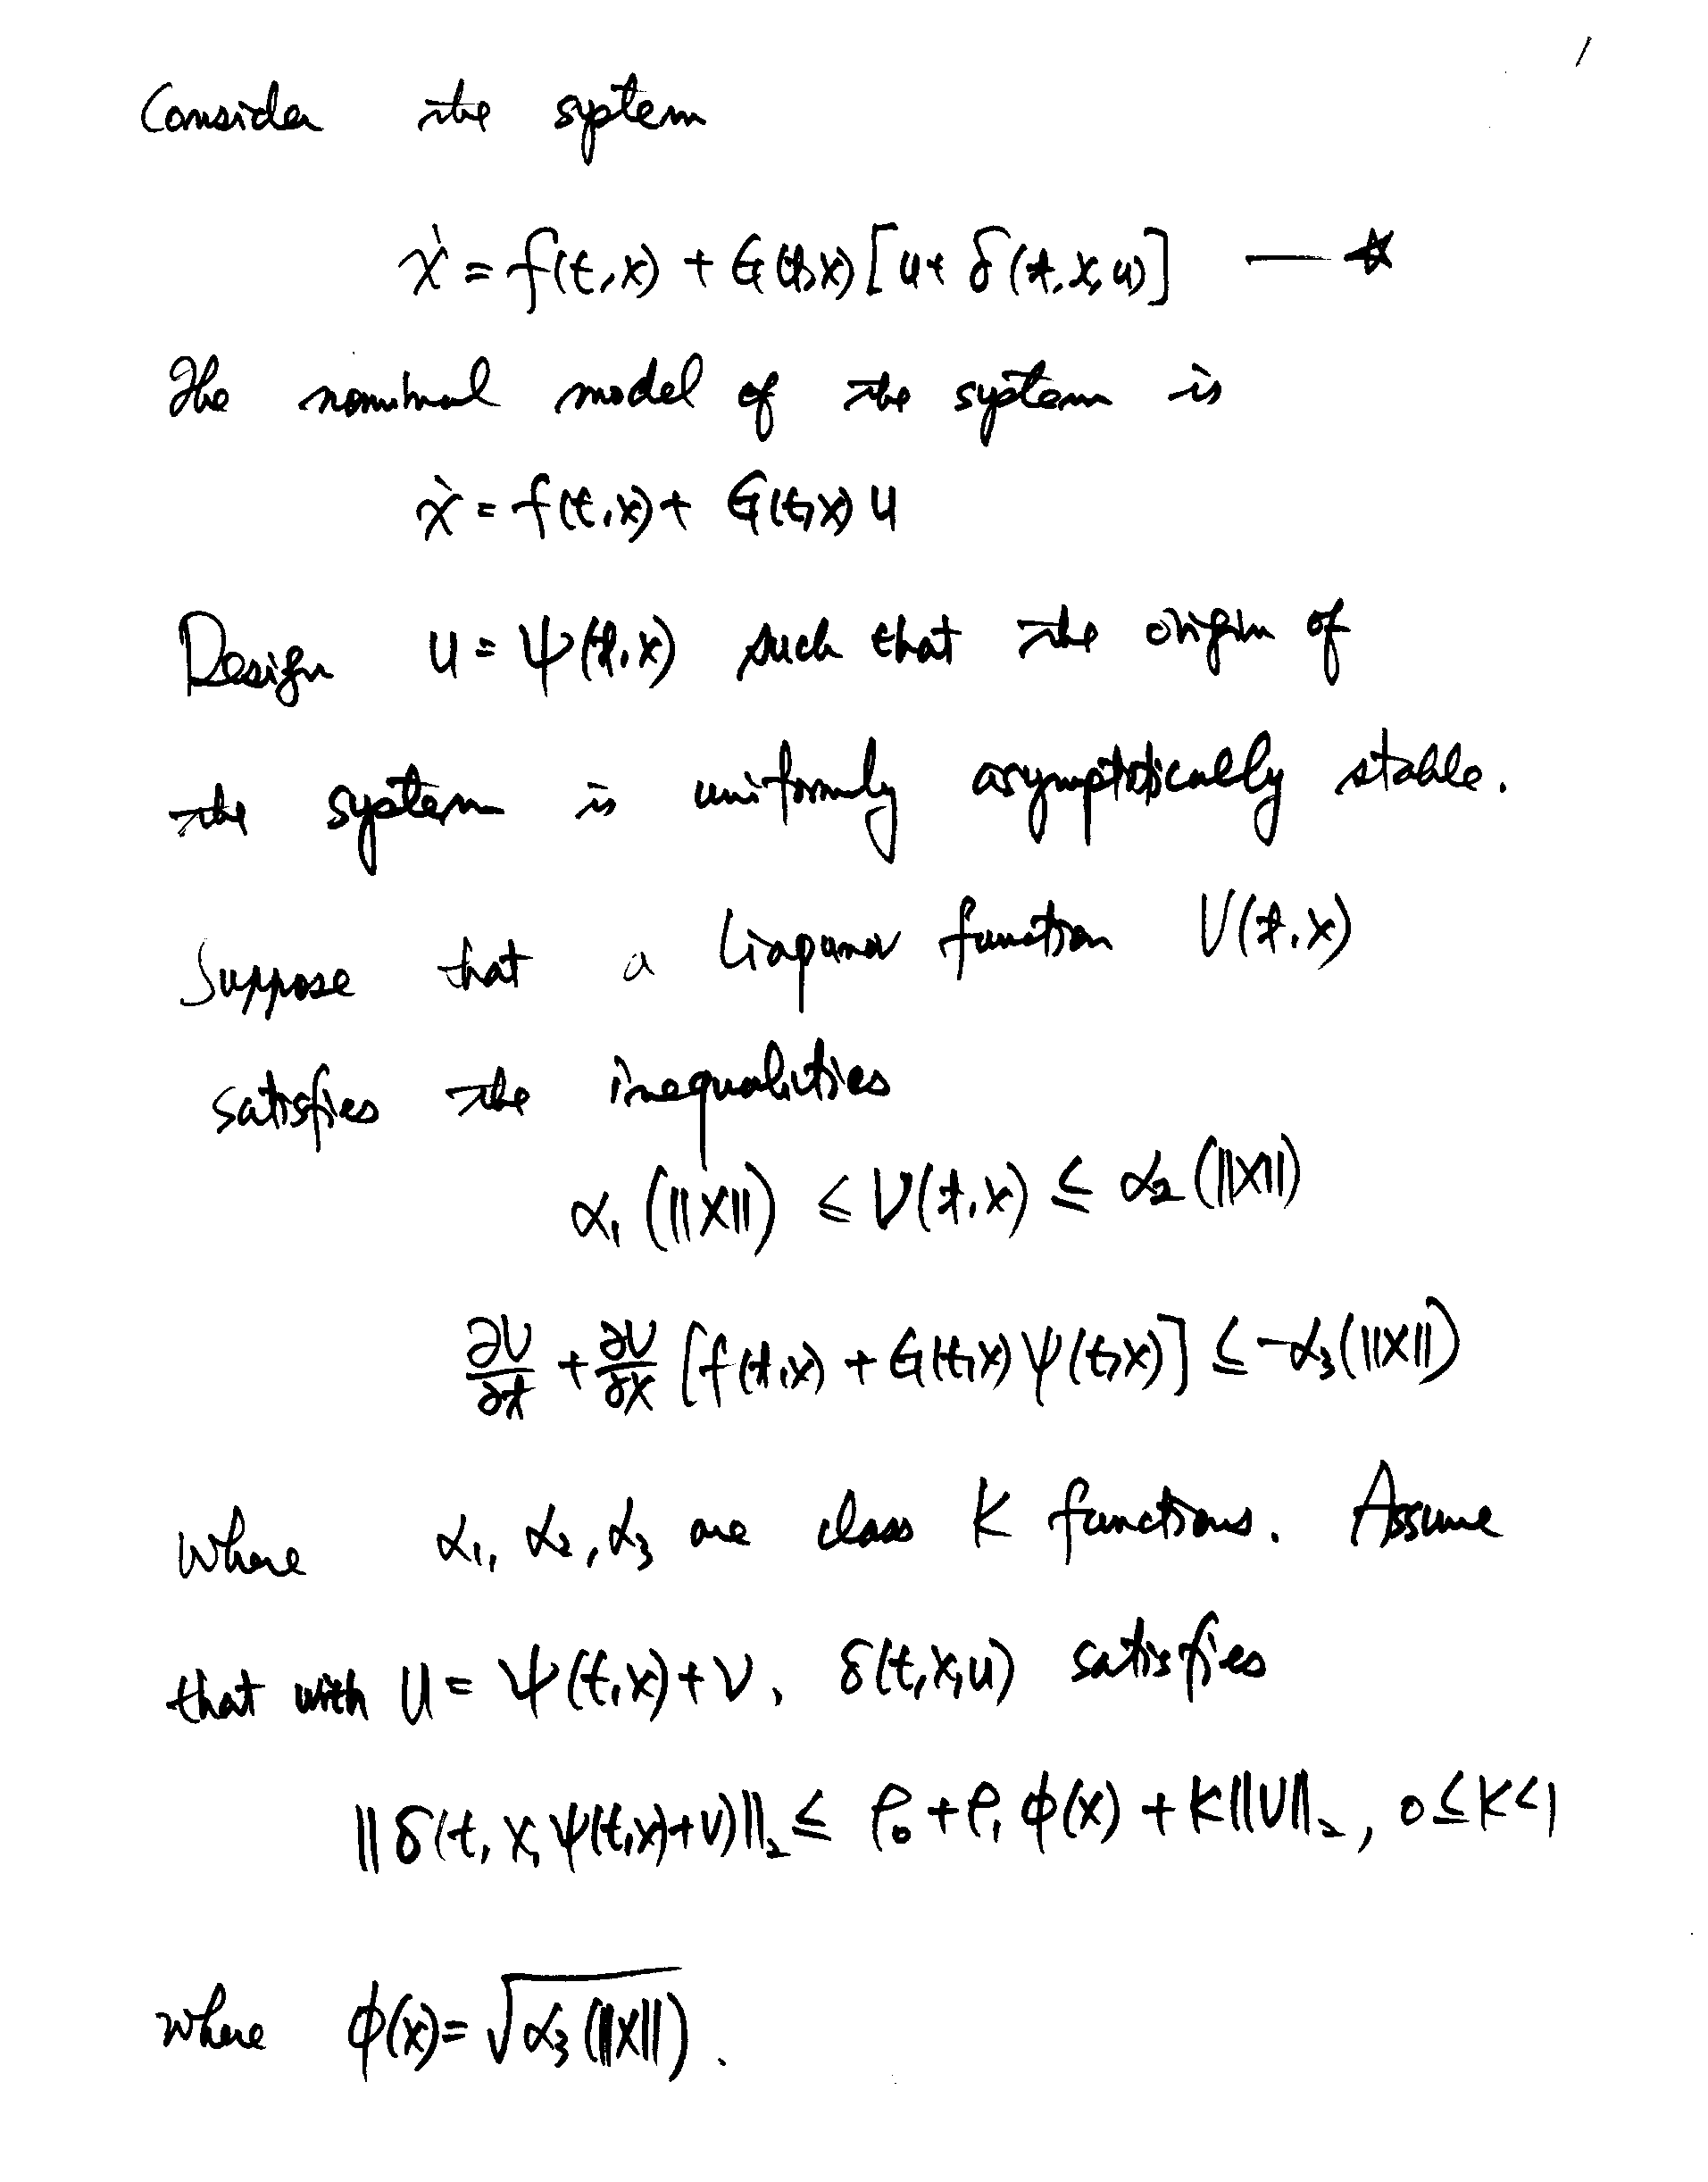 1
Consider the system
ẋ = f(t,x) + G(t,x)[u + δ(t,x,u)] — ☆
The nominal model of the system is
ẋ = f(t,x) + G(t,x) u
Design u = ψ(t,x) such that the origin of
the system is uniformly asymptotically stable.
Suppose that a Liapunov function V(t,x)
satisfies the inequalities
α₁(‖x‖) ≤ V(t,x) ≤ α₂(‖x‖)
∂V/∂t + ∂V/∂x [f(t,x) + G(t,x) ψ(t,x)] ≤ -α₃(‖x‖)
Where α₁, α₂, α₃ are class K functions. Assume
that with u = ψ(t,x) + v, δ(t,x,u) satisfies
‖δ(t, x, ψ(t,x)+v)‖₂ ≤ ρ₀ + ρ₁ φ(x) + k‖v‖₂, 0 ≤ k < 1
where φ(x) = √α₃(‖x‖).